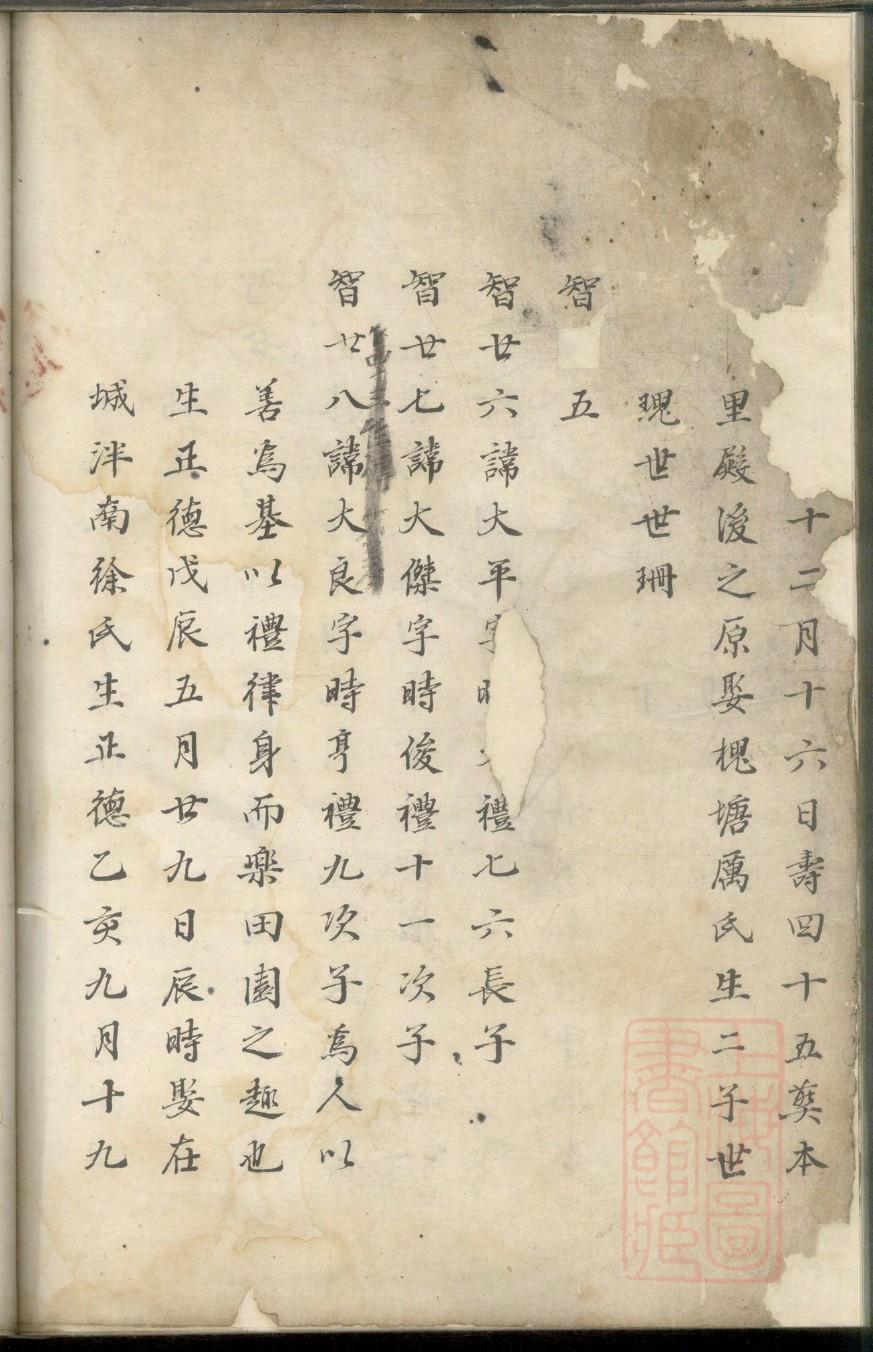 十二月十六日壽四十五葬本
里殿後之原娶槐塘厲氏生二子世
瑰世世珊
智 五
智廿六諱大平字時 禮七六長子
智廿七諱大傑字時俊禮十一次子
智廿八諱大良字時亨禮九次子爲人以
善爲基以禮律身而樂田園之趣也
生正德戊辰五月廿九日辰時娶在
城泮南徐氏生正德乙亥九月十九
上海圖書館藏